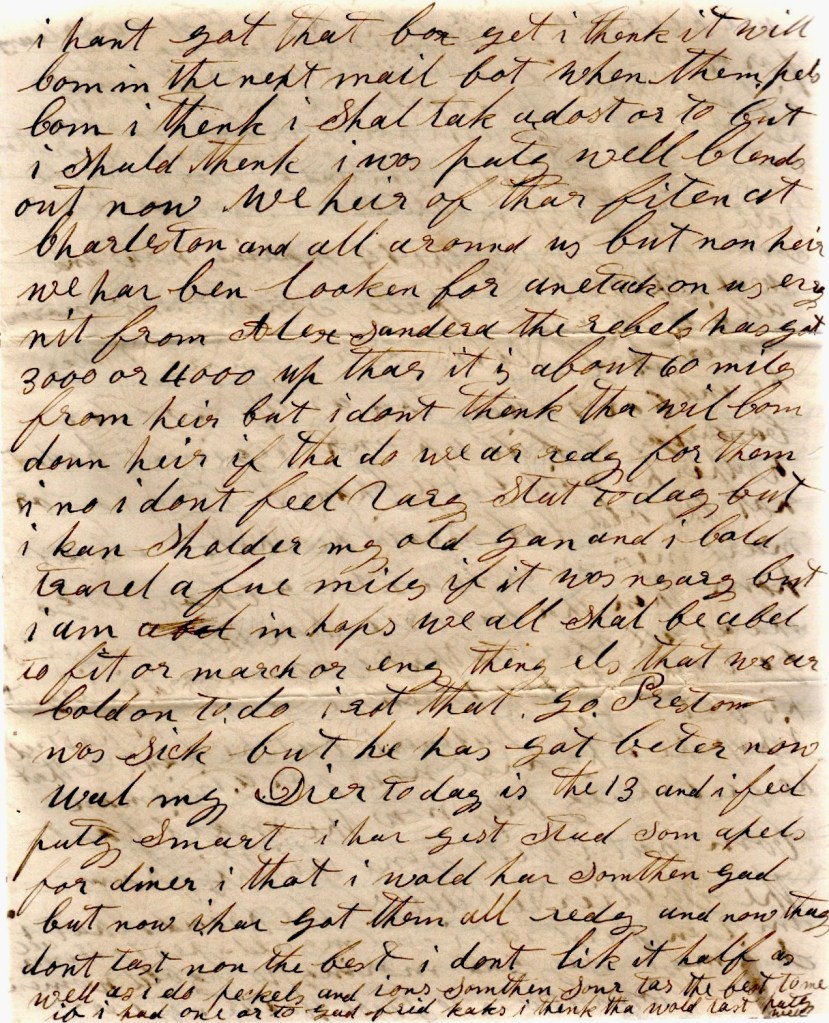 i hant got that box yet i thenk it will
Com in the next mail bot when them pels
Com i thenk i Shal tak a dost or to but
i Shuld thenk i was puty well Clends
out now We heir of thar fiten at
Charleston and all around us but non heir
we har ben looken for an etack on us ery
nit from Alexsanderd the rebels has got
3000 or 4000 up thar it is about 60 miles
from heir but i dont thenk tha wil Com
doun heir if tha do we ar redy for them
i no i dont feel vary Stut to day but
i kan Sholder my old gan and i Cold
travel a fue miles if it was nesary but
i am in hops we all Shal be abel
to fit or march or eny thing els that we ar
Cold on to do i rot that go Preston
was Sick but he has got beter now
Wal my Dier to day is the 13 and i feel
puty Smart i har gest Stud Som apels
for diner i that i wold har Somthen gad
but now i har got them all redy and now thay
dont tast non the best i dont lik it half as
well as i do peckels and i ons Somthen Sour tas the best to me
if i had one or to gad frid kaks i thenk tha wold tast puty well